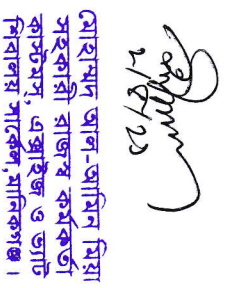 ২/৭/২৫
মোহাম্মদ আল-আমিন মিয়া
সহকারী রাজস্ব কর্মকর্তা
কাস্টমস, এক্সাইজ ও ভ্যাট
শিবালয় সার্কেল, মানিকগঞ্জ।